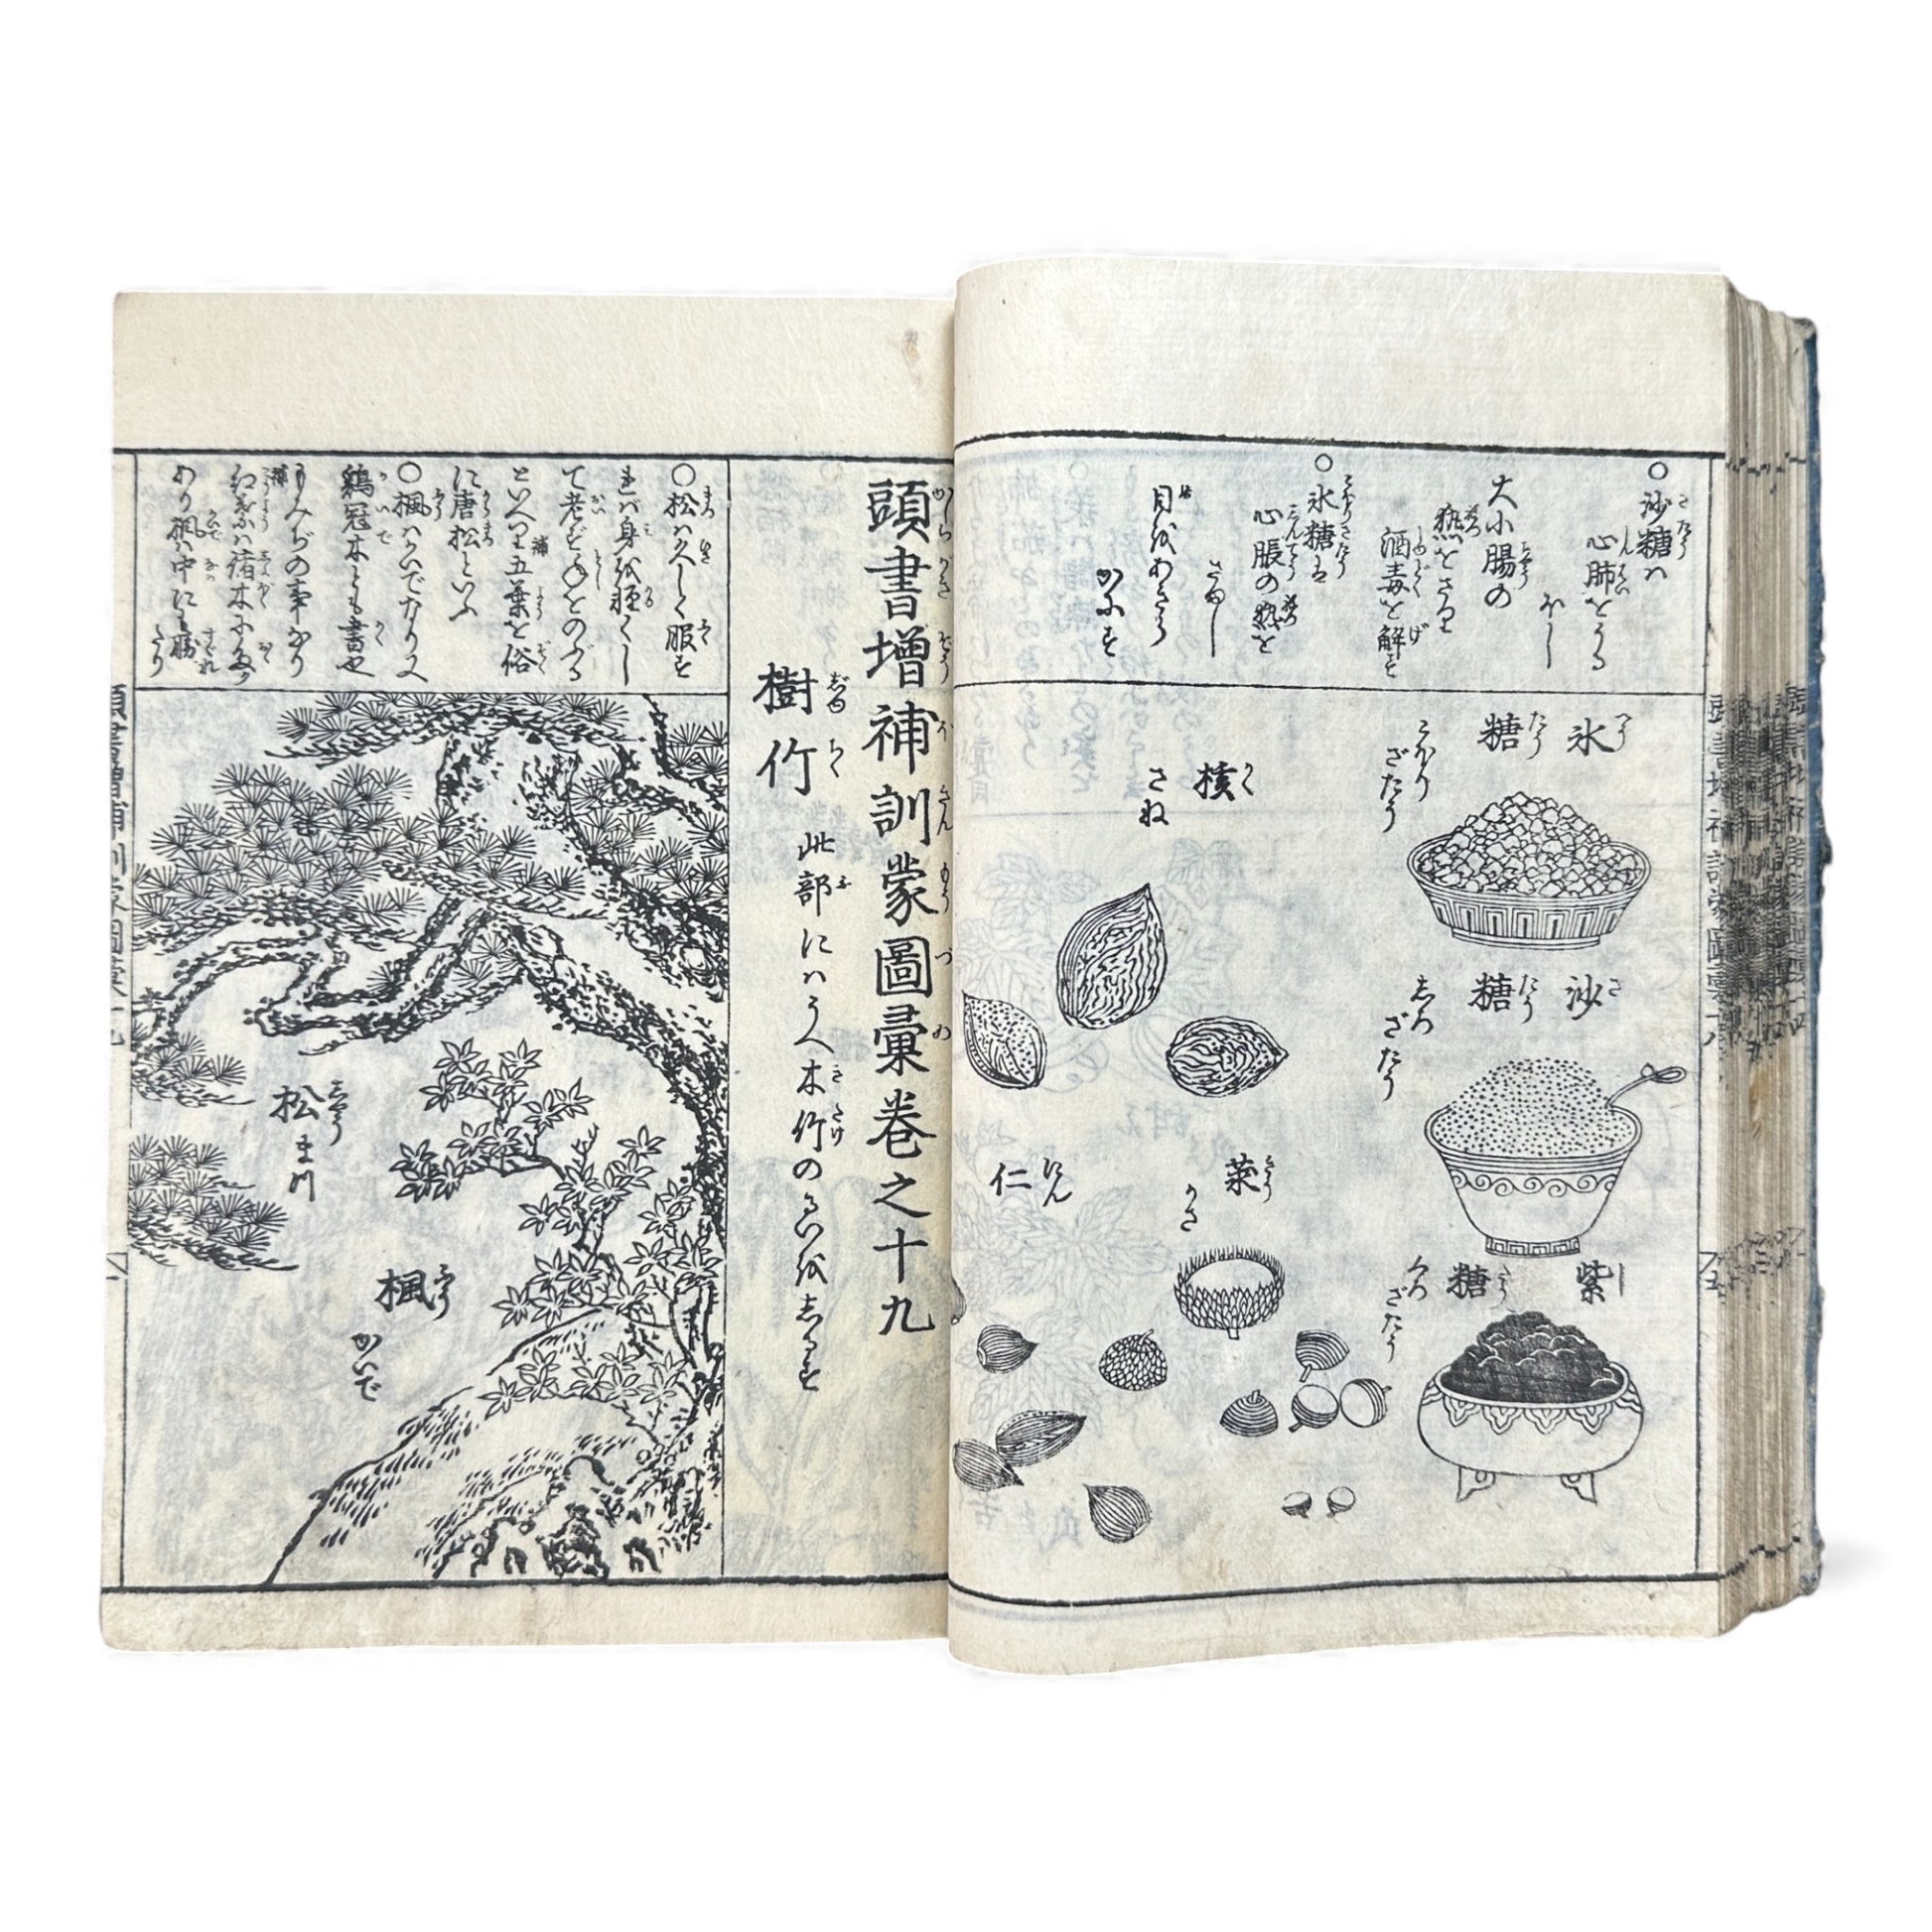 ○沙糖ハ
心肺をうる
ほし
大小腸の
熱をさり
酒毒を解す
○氷糖は
心脹の熱を
さまし
目をあきらかにす
氷糖
こほりざたう
沙糖
しろざたう
紫糖
くろざたう
核
さね
梂
かさ
仁
頭書增補訓蒙圖彙卷之十九
樹竹
此部にハうへ木竹のるいをしるす
○松ハ久しく服す
れバ身を軽くし
て老ず年をのぶる
といへり補五葉を俗
に唐松といふ
○楓ハかいでなり又
鶏冠木とも書也
もみぢの事なり
補紅葉ハ諸木に多く
あり楓ハ中にも勝たり
松
まつ
楓
かいで